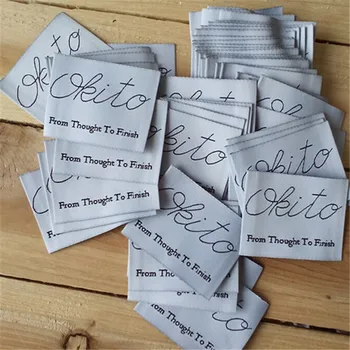 Okito
From Thought To Finish
Okito
From Thought To Finish
From Thought To Finish
From Thought To Finish
Okito
From Thought To Finish
Okito
From Thought To Finish
From Thought To Finish